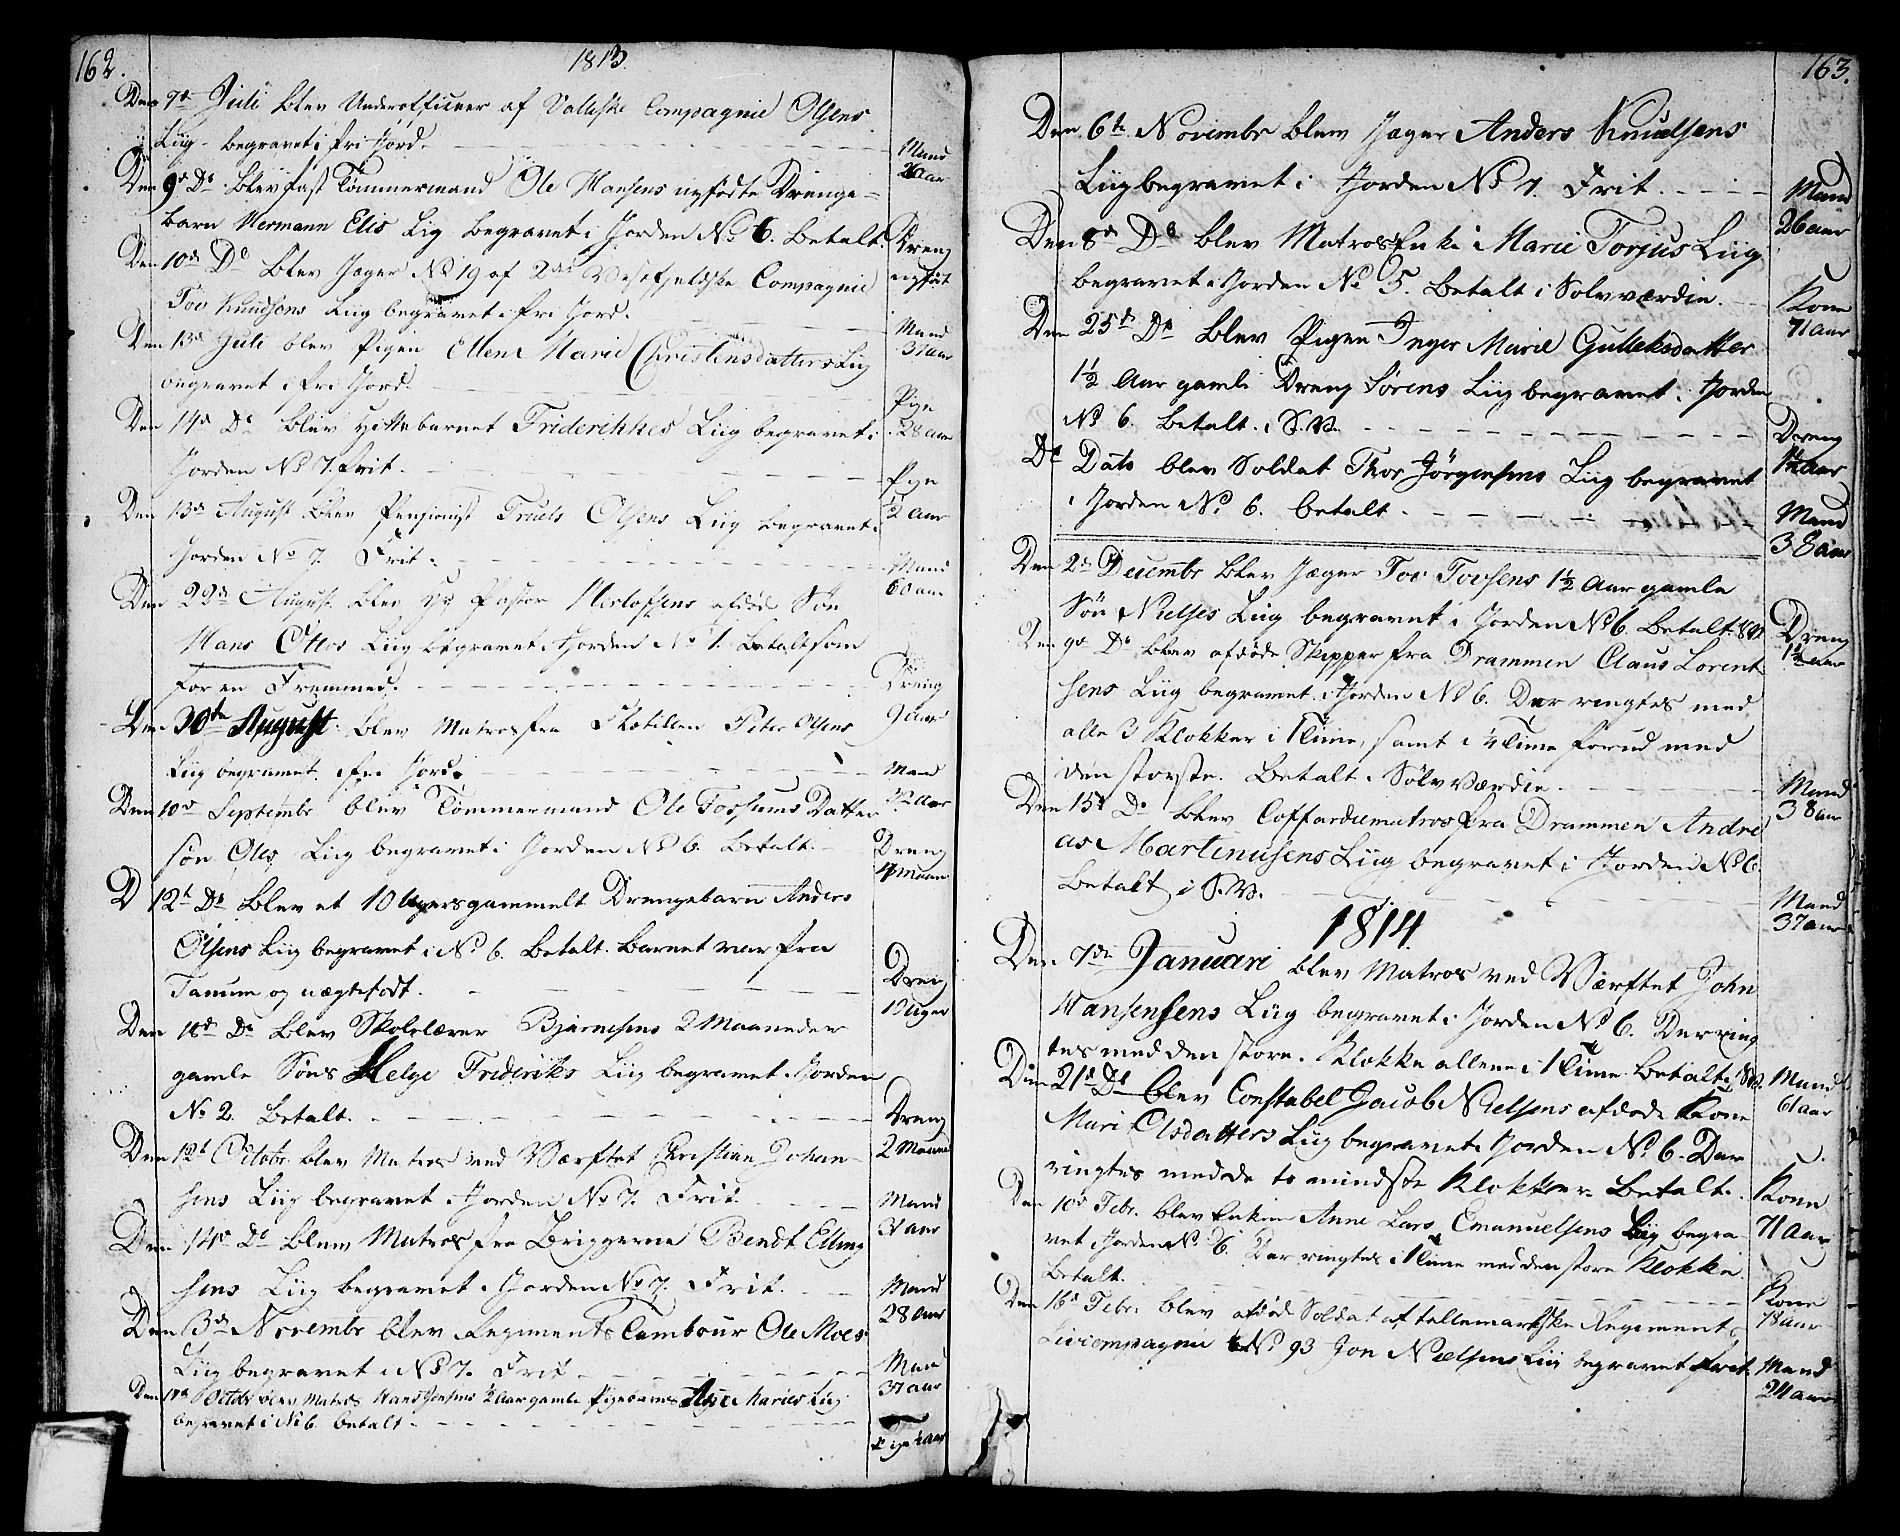 162.
1813.
Den 7d Juli blev Underofficeer af Compagnie Olsens
Liig begravet i fri Jord.
Mand
26 aar
Den 9d Do blev fast Tömmermand Ole Hansens nyfödte Drenge-
barn Hermann Elis Lig begravet i Jorden No 6. Betalt.
Dreng
nyföt
Den 10de Do blev Jæger No 19 af 2det Vesefjeldske Compagnie
Tov Knudsens Liig begravet i fri Jord.
Mand
31 aar
Den 13d Juli blev Pigen Ellen Marie Christensdatters Liig
begravet i fri Jord.
Pige
28 aar
Den 14d Do blev Hittebarnet Friderikkes Liig begravet i
Jorden No 7. Frit.
Pige
1/2 Aar
Den 13de August blev Pensionist Truels Olsens Liig begravet i
Jorden No 7. Frit.
Mand
60 aar
Den 22de August blev Pastor Herlofsens afdöde Sön
Hans Ottos Liig begravet i Jorden No 1. Betalt som
for en Fremmed.
Dreng
9 Aar
Den 30te August blev Matros fra Flotillen Peter Olsens
Liig begravet i fri Jord.
Mand
32 aar
Den 10d Septembr blev Tömmermand Ole Fossums Datter
sön Oles Liig begravet i Jorden No 6. Betalt.
Dreng
4 maan
D 12t Do blev et 10 Ugers gammelt Drengebarn Anders
Olsens Liig begravet i No 6. Betalt. Barnet var fra
Tanum og uægtefödt.
Dreng
Uger
Den 18d Do blev Skolelærer Bjørnesens 2 Maaneder
gamle Söns Helge Frideriks Liig begravet i Jorden
No 2. Betalt.
Dreng
2 Maaned
Den 12t Octobr. blev Matros ved Værftet Christian Johan-
sens Liig begravet i Jorden No 7. Frit.
Mand
31 aar
Den 14d Do blev Matros fra Briggerne Bendt Elling
sens Liig begravet i Jorden No 7. Frit.
Mand
28 Aar
Den 3de Novembr blev Regiments Tambour Ole Moes
Liig begravet i No 7. Frit.
Mand
37 aar
Den Octobr blev Matros Hans Jensens 1/2 Aar gamle Pigebarns Maries Liig
begravet i No 6. betalt.
Pige 1/2 aar
163.
Den 6te Novembr blev Jæger Anders Knudsens
Liig begravet i Jorden No 7. Frit.
Mand
26 aar
Den 8de Do blev Matros Enke Marie Torjus Liig
begravet i Jorden No 5. Betalt i Sölvværdie.
Kone
71 aar
Den 25de Do blev Pigen Inger Marie Gulleksdatter
1 1/2 Aar gamle Dreng Sörens Liig begravet i Jorden
No 6. Betalt i S.V.
Dreng
1 1/2 aar
Do Dato blev Soldat Thor Jörgensens Liig begravet
i Jorden No 6. betalt.
Mand
38 aar
Den 2de Decembr blev Jæger Tov Tovsens 1 1/2 Aar gamle
Sön Nielses Liig begravet i Jorden No 6. Betalt. S.V.
Dreng
1 1/2 aar
Den 9de Do blev afdöde Skipper fra Drammen Claus Lorent
sens Liig begravet i Jorden No 6. Der ringtes med
alle 3 Klokker i 1 Time, samt i 1/4 Time forud med
den störste. Betalt i Sölvværdie.
Mand
38 aar
Den 15d Do blev Coffardiematros fra Drammen Andre
as Martinusens Liig begravet i Jorden No 6
Betalt i S.V.
Mand
37 aar
1814.
Den 7de Januari blev Matros ved Værftet John
Hansensens Liig begravet i Jorden No 6. Der ring
tes med den store Klokke allene i 1 Time. Betalt i S.V.
Mand
61 aar
Den 21d Do blev Constabel Jacob Nielsens afdöde Kone
Mari Olsdatters Liig begravet i Jorden No 6. Der
ringtes med de to mindste Klokker. Betalt.
Kone
71 Aar
Den 10d Febr. blev Enken Anne Lars Emanuelsens Liig begra-
vet i Jorden No 6. Der ringtes i 1 Time med den store Klokke.
Betalt.
Kone
78 aar
Den 16d Febr. blev afdöd Soldat af tellemarkske Regiment
Livcompagnie No 93 Jon Nielsens Liig begravet frit.
Mand
24 aar